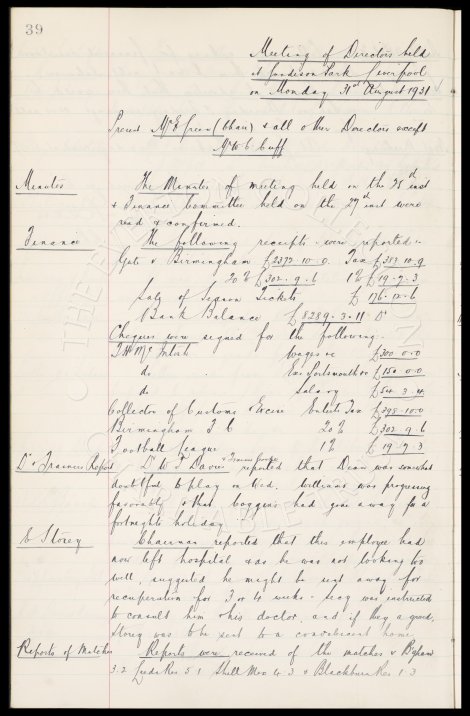 39
Meeting of Directors held
at Goodison Park Liverpool
on Monday 31st August 1931
Present Mr E Green (Chair) & all other Directors except
Mr W C Cuff
Minutes The Minutes of meeting held on the 25th inst
& Finance Committee held on the 27th inst were
read & confirmed.
Finance The following receipts were reported:-
Gate v Birmingham £2372.10.0 Tax £383.10.9
20% £302.9.6 1% £19.7.3
Sale of Season Tickets £176.12.6
Bank Balance £8289.3.11 Dr
Cheques were signed for the following.
T H McIntosh Wages ac £300.0.0
do Exs Portsmouth ac £150.0.0
do Salary £54.3.4
Collector of Customs & Excise Entertts Tax £398.10.0
Birmingham F C 20% £302.9.6
Football League 1% £19.7.3
Dr & Trainers Report Dr W F Davies & Trainer Cooke reported that Dean was somewhat
doubtful to play on Wed, Williams was progressing
favorably & that Coggins had gone away for a
fortnights holiday
C Storey Chairman reported that this employee had
now left hospital & as he was not looking too
well, suggested he might be sent away for
recuperation for 3 or 4 weeks. Secy was instructed
to consult him & his doctor, and if they agreed,
Storey was to be sent to a convalescent home
Reports of Matches Reports were received of the matches v B'gham
3.2 Leeds Res 5.1 Shell Mex 4.3 & Blackburn Res 1.3